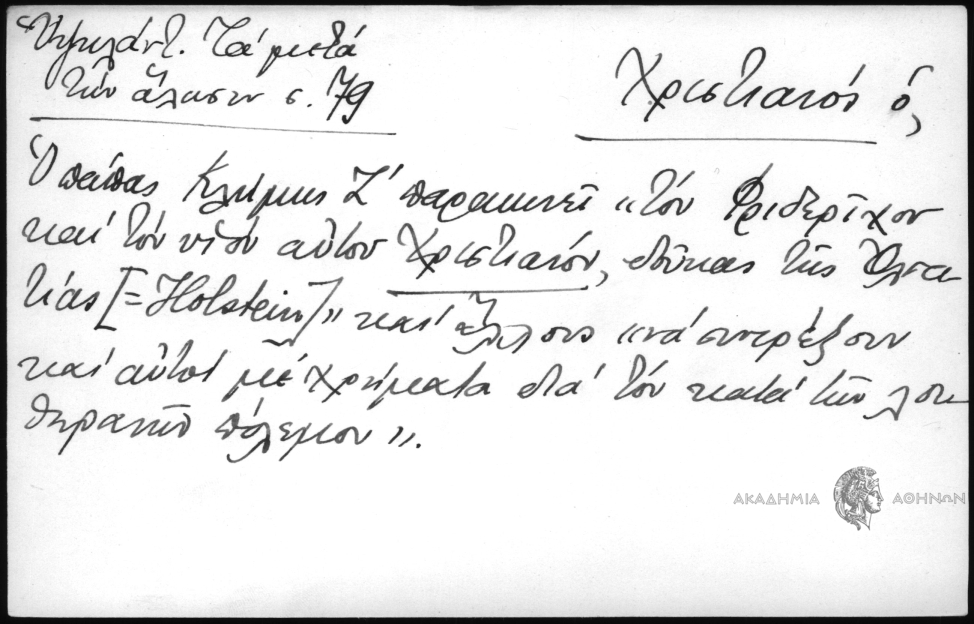 Ὑψηλάντ. Τά μετά
τήν ἅλωσιν σ. 79
Χριστιανός ὁ,
Ὁ πάπας Κλήμης Ζ' παρακινεῖ «τόν Φριδερῖχον
καί τόν υἱόν αὐτοῦ Χριστιανόν, δούκας τῆς Ὀλσα
τίας [=Holstein]» καί ἄλλους «νά συντρέξουν
καί αὐτοί μέ χρήματα διά τόν κατά τῶν λου
θηρανῶν πόλεμον».
ΑΚΑΔΗΜΙΑ ΑΘΗΝΩΝ